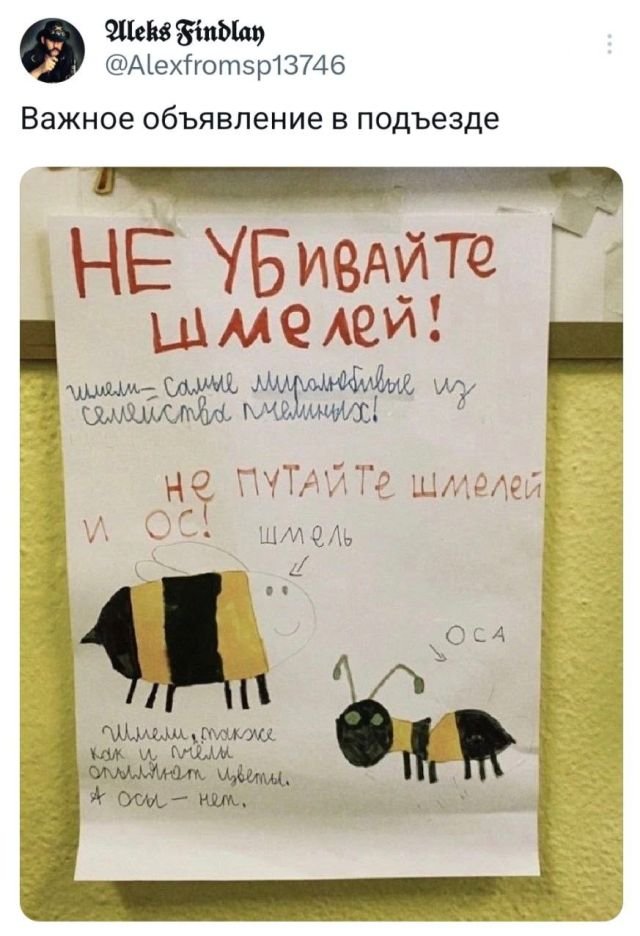 Aleks Findlay
@Alexfromsp13746
Важное объявление в подъезде
НЕ УБИВАЙТЕ
ШМЕЛЕЙ!
шмели - самые миролюбивые из
семейства пчелиных!
НЕ ПУТАЙТЕ ШМЕЛЕЙ
И ОС!
ШМЕЛЬ
ОСА
Шмели, также
как и пчёлы
опыляют цветы.
А осы - нет.